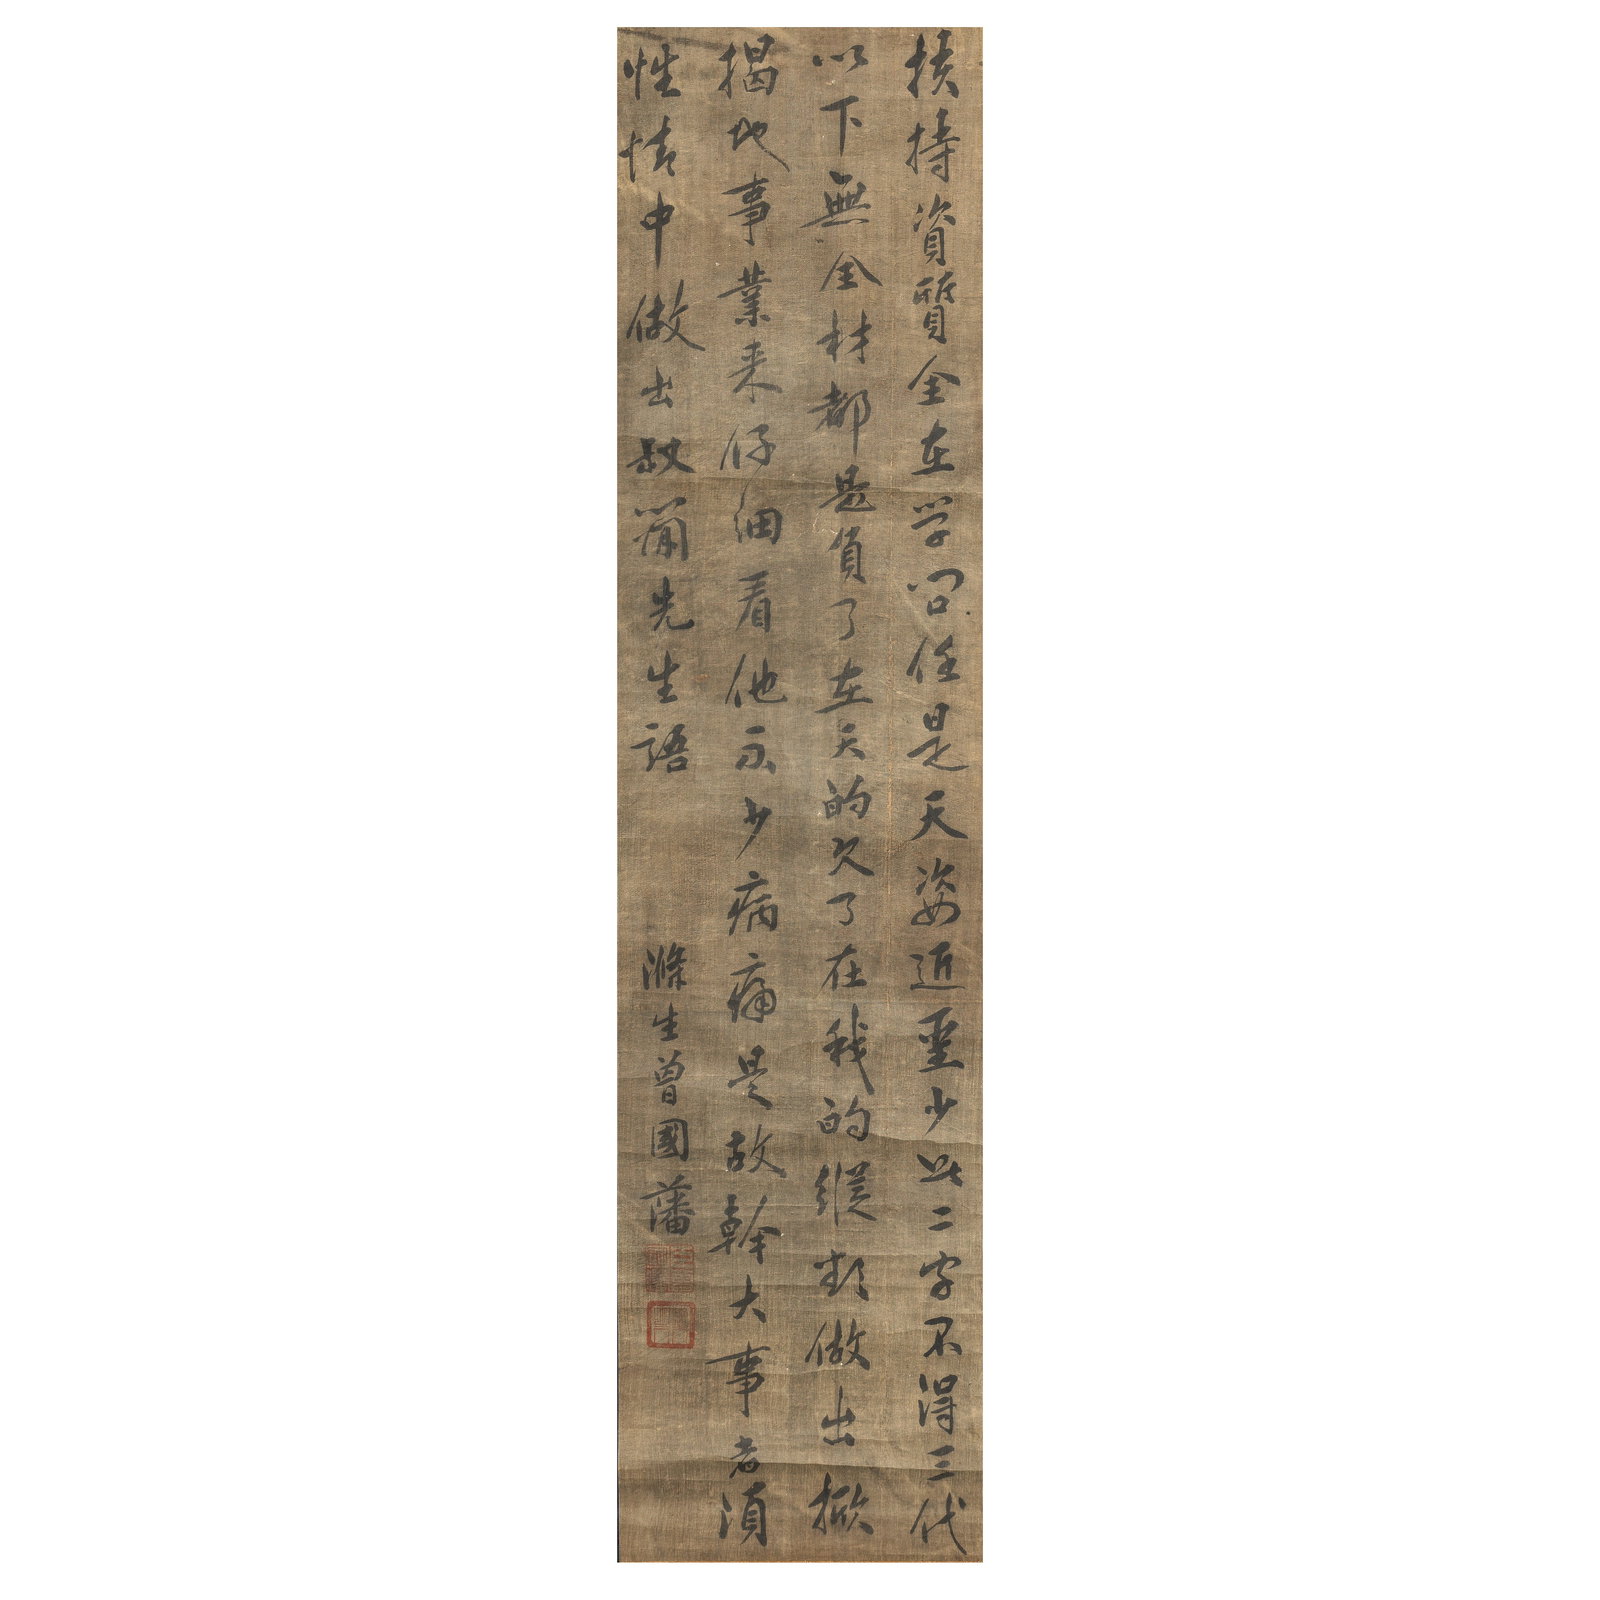 扶持資質全在学問任是天姿近聖少此二字不得三代
以下無全材都是負了在天的欠了在我的縱做出掀
揭地事業来仔細看他不少病痛是故幹大事者須
性情中做出叔簡先生語 滌生曾國藩